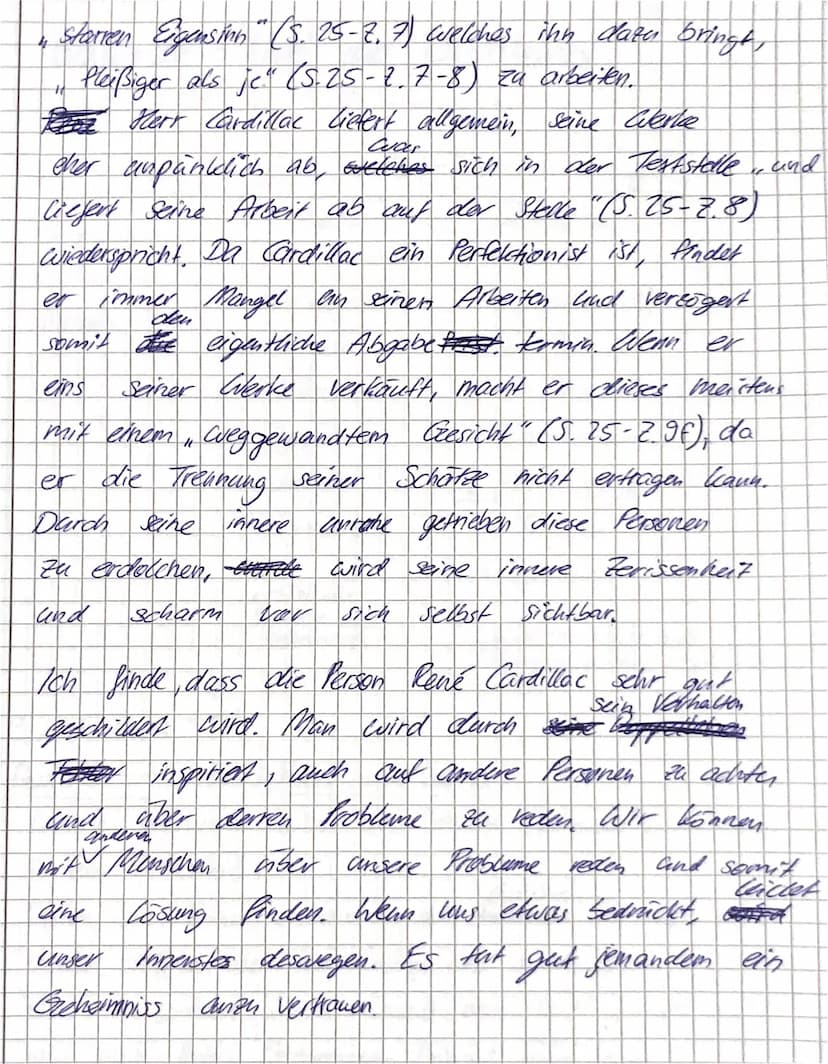 „starren Eigensinn" (S. 25-Z. 7) welches ihn dazu bringt,
„fleißiger als je" (S. 25 - Z. 7-8) zu arbeiten.
Herr Cardillac liefert allgemein, seine Werke
eher unpünklich ab, was sich in der Textstelle „und
liefert seine Arbeit ab auf der Stelle" (S. 25-Z. 8)
wiederspricht. Da Cardillac ein Perfektionist ist, findet
er immer Mangel an seinen Arbeiten und verzögert
somit den eigentliche Abgabe termin. Wenn er
eins seiner Werke verkäuft, macht er dieses meistens
mit einem „weggewandtem Gesicht" (S. 25-Z. 9f), da
er die Trennung seiner Schätze nicht ertragen kann.
Durch seine innere unruhe getrieben diese Personen
zu erdolchen, wird seine innere Zerissenheit
und scharm vor sich selbst sichtbar.
Ich finde, dass die Person René Cardillac sehr gut
geschildert wird. Man wird durch sein Verhalten
inspiriert, auch auf andere Personen zu achten
und über derren Probleme zu reden. Wir können
mit anderen Menschen über unsere Probleme reden und somit
eine Lösung finden. Wenn uns etwas bedrückt, leidet
unser Innerstes deswegen. Es tut gut jemandem ein
Geheimniss anzu vertrauen.